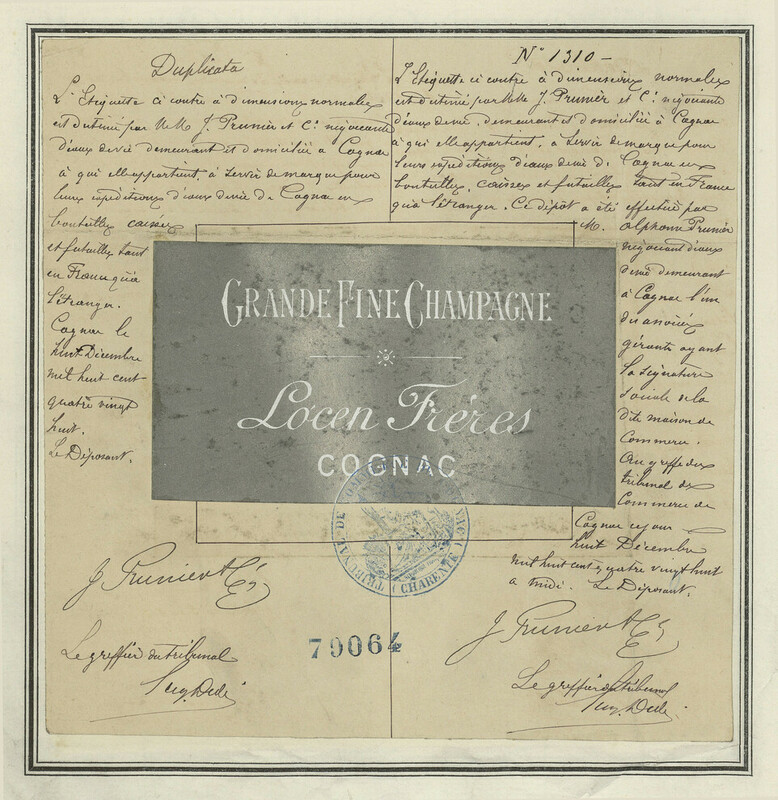 Duplicata
L'Etiquette ci contre à dimensions normales
est destinée par MM J. Prunier et Cie négociants
d'eaux de vie demeurant et domiciliés à Cognac
à qui elle appartient à servir de marque pour
leurs expéditions d'eaux de vie de Cognac en
bouteilles caisses
et futailles tant
en France qu'à
l'étranger.
Cognac le
huit Décembre
mil huit cent
quatre vingt
huit.
Le Déposant.
J. Prunier & Cie
Le greffier du tribunal
N° 1310 -
L'Etiquette ci contre à dimensions normales
est destinée par MM J. Prunier et Cie négociants
d'eaux de vie, demeurant et domiciliés à Cognac
à qui elle appartient, à servir de marque pour
leurs expéditions d'eaux de vie de Cognac en
bouteilles, caisses et futailles tant en France
qu'à l'étranger. Ce dépôt a été effectué par
M. Alphonse Prunier
négociant d'eaux
de vie demeurant
à Cognac l'un
des associés
gérants ayant
la signature
sociale de la
dite maison de
Commerce.
Au greffe du
tribunal de
Commerce de
Cognac ce jour
huit Décembre
mil huit cent quatre vingt huit
a midi. Le Déposant.
J. Prunier & Cie
Le greffier du tribunal
GRANDE FINE CHAMPAGNE
Locen Fréres
COGNAC
TRIBUNAL DE COMMERCE
(CHARENTE)
79064